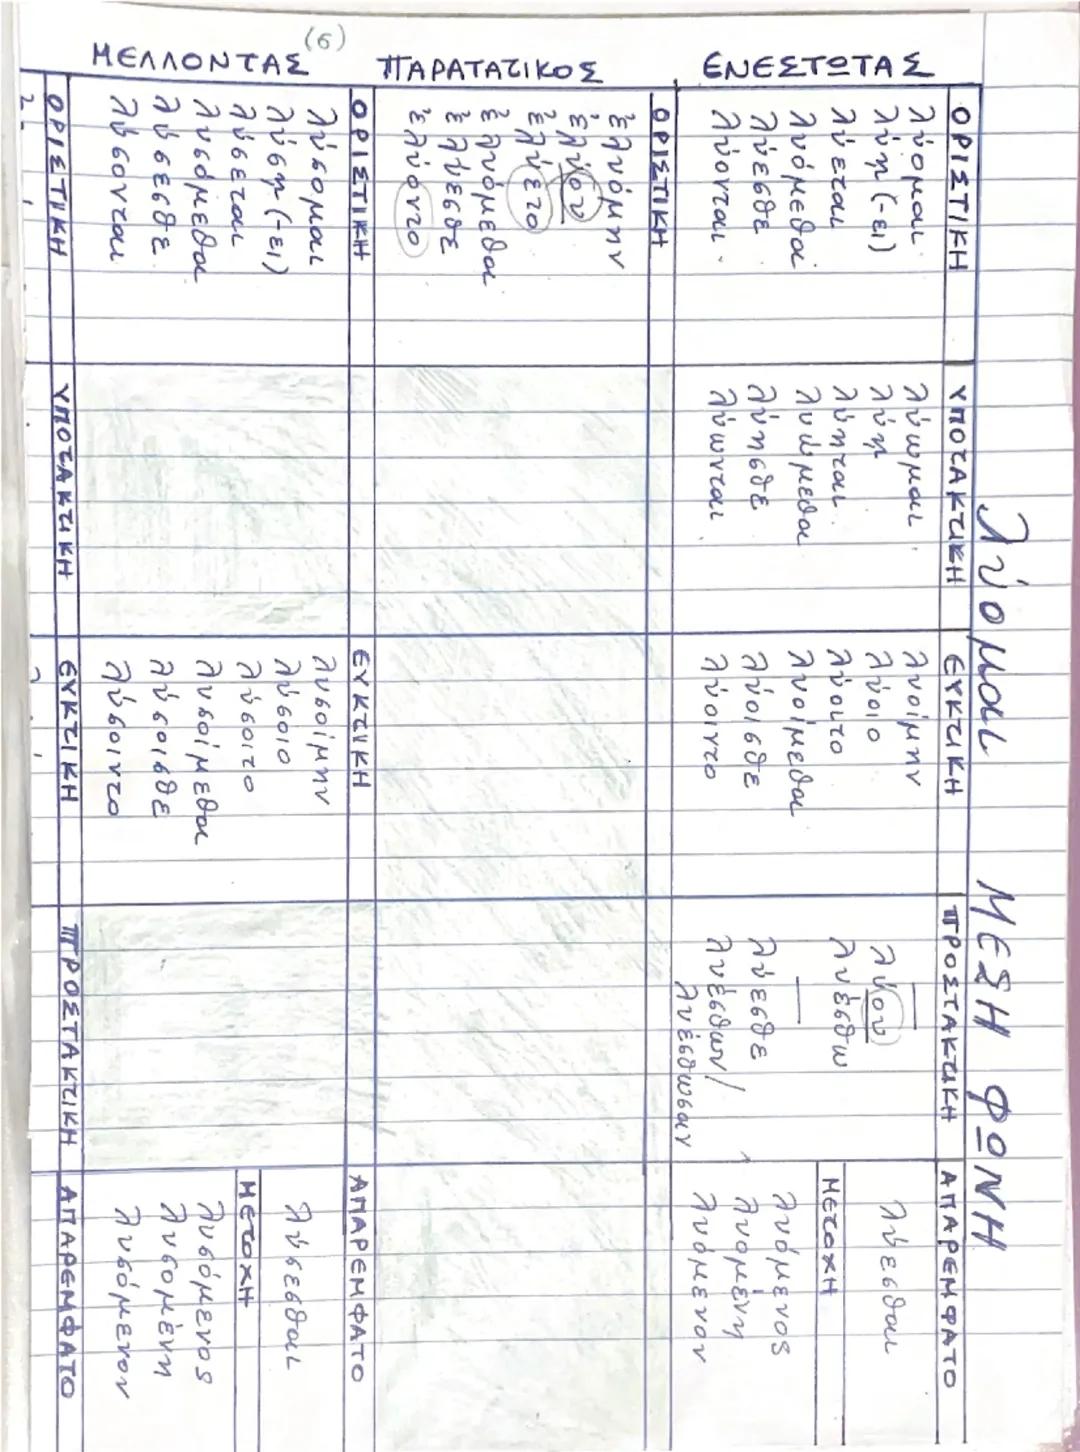 λύομαι ΜΕΣΗ ΦΩΝΗ
ΕΝΕΣΤΩΤΑΣ
ΟΡΙΣΤΙΚΗ ΥΠΟΤΑΚΤΙΚΗ ΕΥΚΤΙΚΗ ΠΡΟΣΤΑΚΤΙΚΗ ΑΠΑΡΕΜΦΑΤΟ
λύομαι λύωμαι λυοίμην —
λύῃ (-ει) λύῃ λύοιο λύου λύεσθαι
λύεται λύηται λύοιτο λυέσθω
ΜΕΤΟΧΗ
λυόμεθα λυώμεθα λυοίμεθα — λυόμενος
λύεσθε λύησθε λύοισθε λύεσθε λυομένη
λύονται λύωνται λύοιντο λυέσθων/ λυόμενον
λυέσθωσαν
ΠΑΡΑΤΑΤΙΚΟΣ
ΟΡΙΣΤΙΚΗ
ἐλυόμην
ἐλύου
ἐλύετο
ἐλυόμεθα
ἐλύεσθε
ἐλύοντο
(6)
ΜΕΛΛΟΝΤΑΣ
ΟΡΙΣΤΙΚΗ ΕΥΚΤΙΚΗ ΑΠΑΡΕΜΦΑΤΟ
λύσομαι λυσοίμην
λύσῃ (-ει) λύσοιο λύσεσθαι
λύσεται λύσοιτο ΜΕΤΟΧΗ
λυσόμεθα λυσοίμεθα λυσόμενος
λύσεσθε λύσοισθε λυσομένη
λύσονται λύσοιντο λυσόμενον
ΟΡΙΣΤΙΚΗ ΥΠΟΤΑΚΤΙΚΗ ΕΥΚΤΙΚΗ ΠΡΟΣΤΑΚΤΙΚΗ ΑΠΑΡΕΜΦΑΤΟ